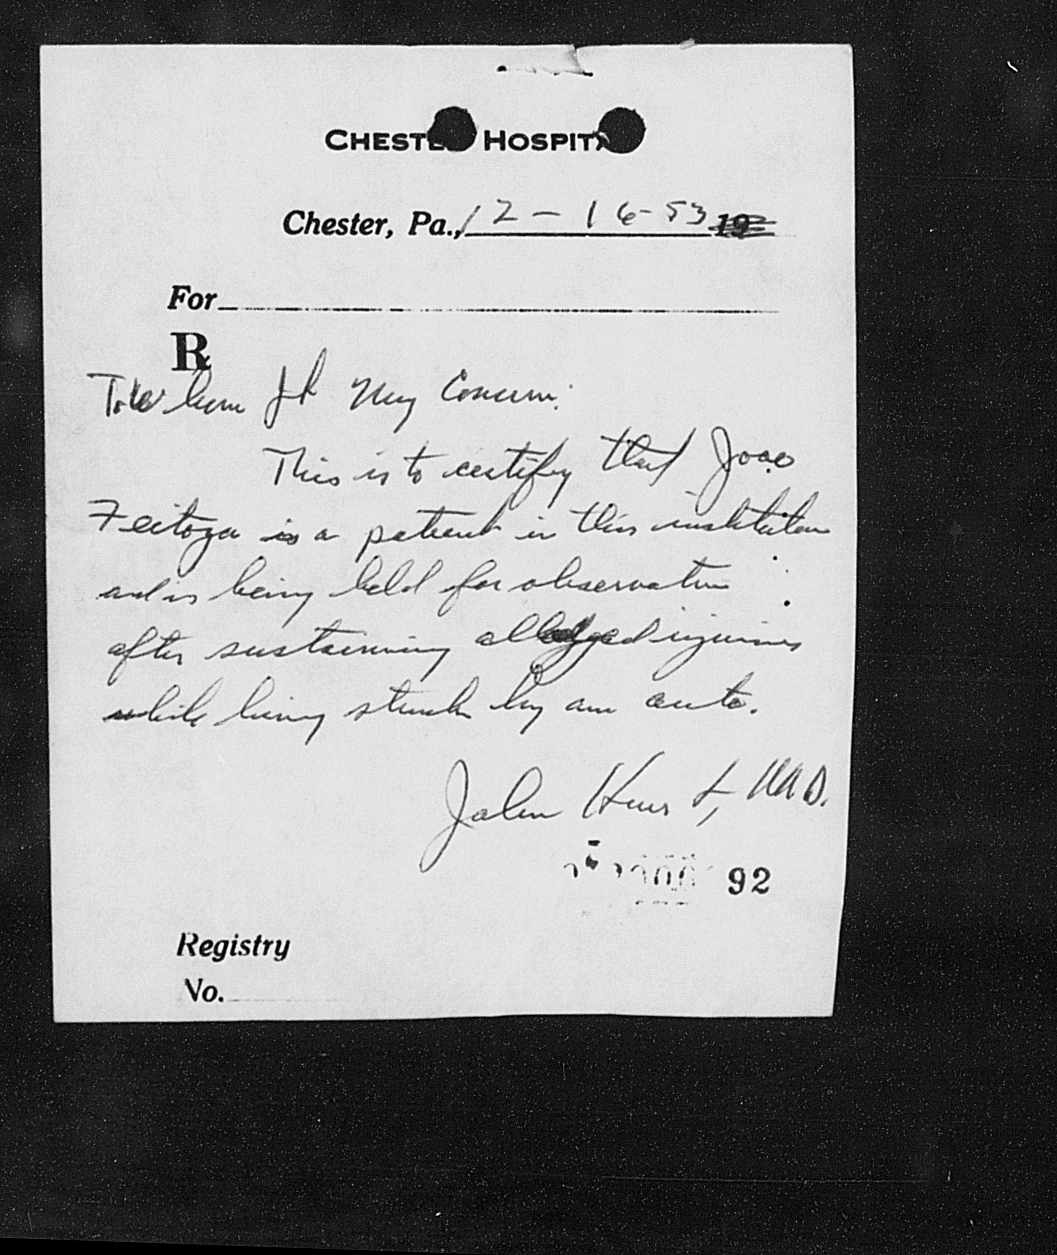 CHESTER HOSPITAL
Chester, Pa., 12-16-53 19
For
R
To Whom It May Concern:
This is to certify that Joao
Feitoza is a patient in this institution
and is being held for observation
after sustaining alledged injuries
while being struck by an auto.
John Hurst, M.D.
92
Registry
No.